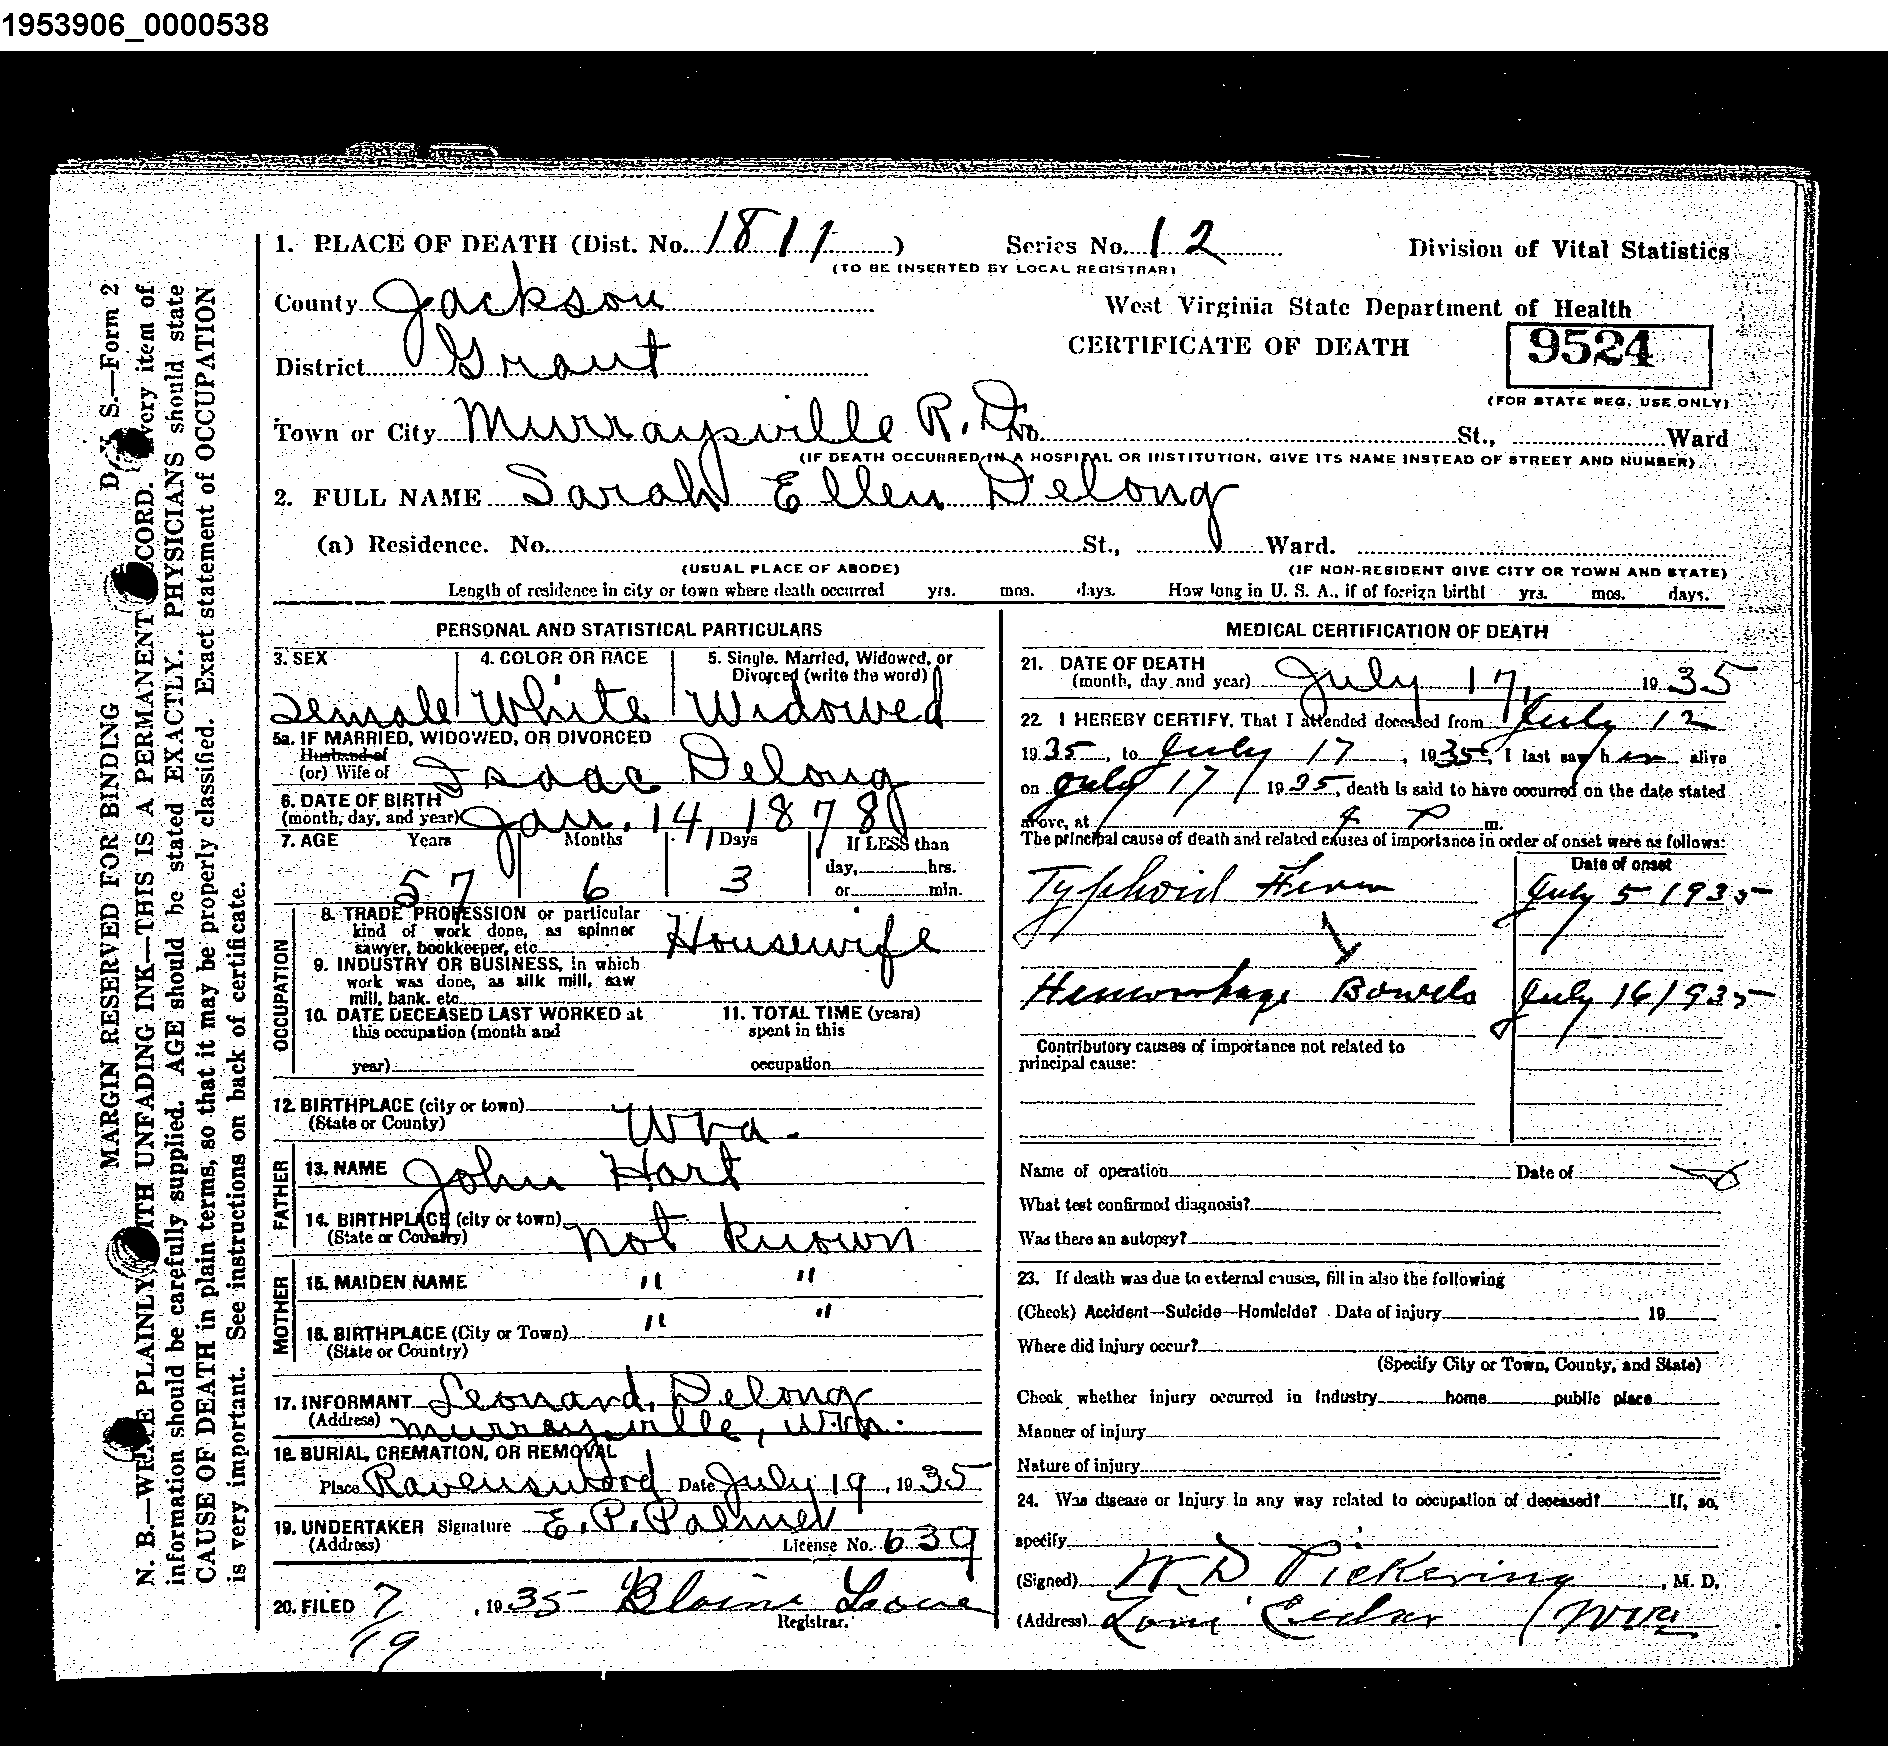 1953906_0000538
1. PLACE OF DEATH (Dist. No. 1811) Series No. 12 Division of Vital Statistics
(TO BE INSERTED BY LOCAL REGISTRAR)
County Jackson West Virginia State Department of Health
CERTIFICATE OF DEATH 9524
District Grant
(FOR STATE REG. USE ONLY)
Town or City Murraysville R.D. No. St., Ward
(IF DEATH OCCURRED IN A HOSPITAL OR INSTITUTION, GIVE ITS NAME INSTEAD OF STREET AND NUMBER)
2. FULL NAME Sarah Ellen Delong
(a) Residence. No. St., Ward.
(USUAL PLACE OF ABODE) (IF NON-RESIDENT GIVE CITY OR TOWN AND STATE)
Length of residence in city or town where death occurred yrs. mos. days. How long in U. S. A., if of foreign birth? yrs. mos. days.
PERSONAL AND STATISTICAL PARTICULARS
3. SEX 4. COLOR OR RACE 5. Single. Married, Widowed, or
Divorced (write the word)
Female White Widowed
5a. IF MARRIED, WIDOWED, OR DIVORCED
Husband of
(or) Wife of Isaac Delong
6. DATE OF BIRTH
(month, day, and year) Jan. 14, 1878
7. AGE Years Months Days If LESS than
day, hrs.
57 6 3 or min.
OCCUPATION
8. TRADE PROFESSION or particular
kind of work done, as spinner
sawyer, bookkeeper, etc. Housewife
9. INDUSTRY OR BUSINESS, in which
work was done, as silk mill, saw
mill, bank. etc.
10. DATE DECEASED LAST WORKED at 11. TOTAL TIME (years)
this occupation (month and spent in this
year) occupation
12. BIRTHPLACE (city or town)
(State or County) WVa.
FATHER
13. NAME John Hart
14. BIRTHPLACE (city or town)
(State or Country) not known
MOTHER
15. MAIDEN NAME " "
16. BIRTHPLACE (City or Town) " "
(State or Country)
17. INFORMANT Leonard Delong
(Address) Murraysville, W.Va.
18. BURIAL, CREMATION, OR REMOVAL
Place Ravenswood Date July 19, 1935
19. UNDERTAKER Signature E. P. Palmer
(Address) License No. 639
20. FILED 7 , 1935 Blaine
19 Registrar.
MEDICAL CERTIFICATION OF DEATH
21. DATE OF DEATH
(month, day and year) July 17, 1935
22. I HEREBY CERTIFY, That I attended deceased from July 12
1935, to July 17, 1935, I last saw h er alive
on July 17 1935, death is said to have occurred on the date stated
above, at P m.
The principal cause of death and related causes of importance in order of onset were as follows:
Date of onset
Typhoid Fever July 5 1935
Hemorrhage Bowels July 16 1935
Contributory causes of importance not related to
principal cause:
Name of operation Date of
What test confirmed diagnosis?
Was there an autopsy?
23. If death was due to external causes, fill in also the following
(Check) Accident—Suicide—Homicide? Date of injury 19
Where did injury occur?
(Specify City or Town, County, and State)
Check whether injury occurred in Industry home public place
Manner of injury
Nature of injury
24. Was disease or Injury in any way related to occupation of deceased? If, so,
specify
(Signed) W. D. Pickering, M. D.
(Address) WVa
S.—Form 2
MARGIN RESERVED FOR BINDING
N. B.—WRITE PLAINLY WITH UNFADING INK—THIS IS A PERMANENT RECORD. Every item of
information should be carefully supplied. AGE should be stated EXACTLY. PHYSICIANS should state
CAUSE OF DEATH in plain terms, so that it may be properly classified. Exact statement of OCCUPATION
is very important. See instructions on back of certificate.